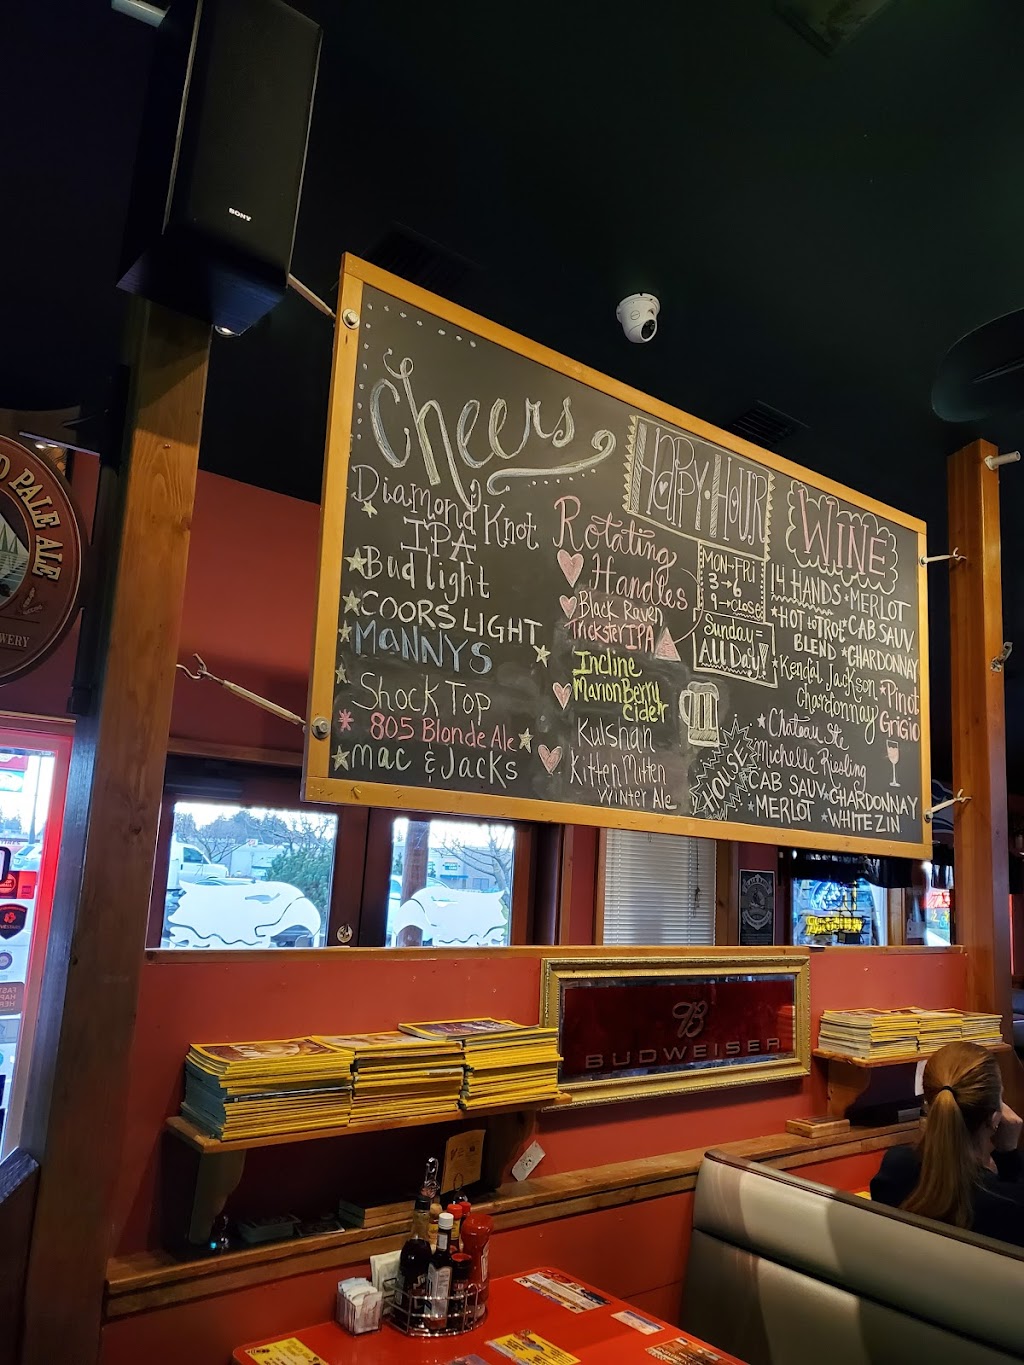 SONY
D PALE ALE
WERY
Cheers
Diamond Knot
IPA
Bud light
COORS LIGHT
MANNYS
Shock Top
805 Blonde Ale
mac & Jacks
Rotating
Handles
Black Raven
Trickster IPA
Incline
MarionBerry
Cider
Kulshan
Kitten Mitten
Winter Ale
HAPPY HOUR
MON-FRI
3→6
9→close
Sunday=
All Day!
WINE
14 HANDS *MERLOT
*HOT to TROT *CAB SAUV
BLEND *CHARDONNAY
*Kendal Jackson
Chardonnay
*Pinot
Grigio
*Chateau Ste
Michelle Riesling
HOUSE
*CAB SAUV *CHARDONNAY
*MERLOT *WHITE ZIN
B
BUDWEISER